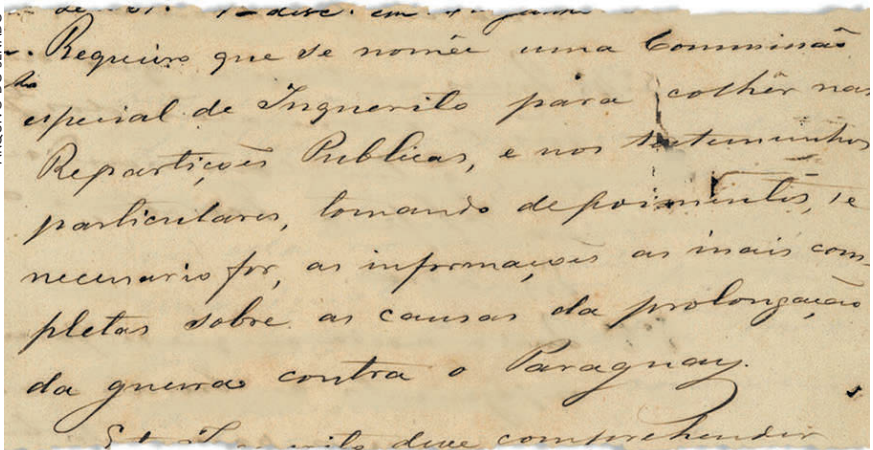 1ª disc. em
Requeiro que se nomêe uma Commissão
especial de Inquerito para colhêr nas
Repartições Publicas, e nos testemunhos
particulares, tomando depoimentos, se
necessario fôr, as informações as mais com-
pletas sobre as causas da prolongação
da guerra contra o Paraguay.
Este Inquerito deve comprehender